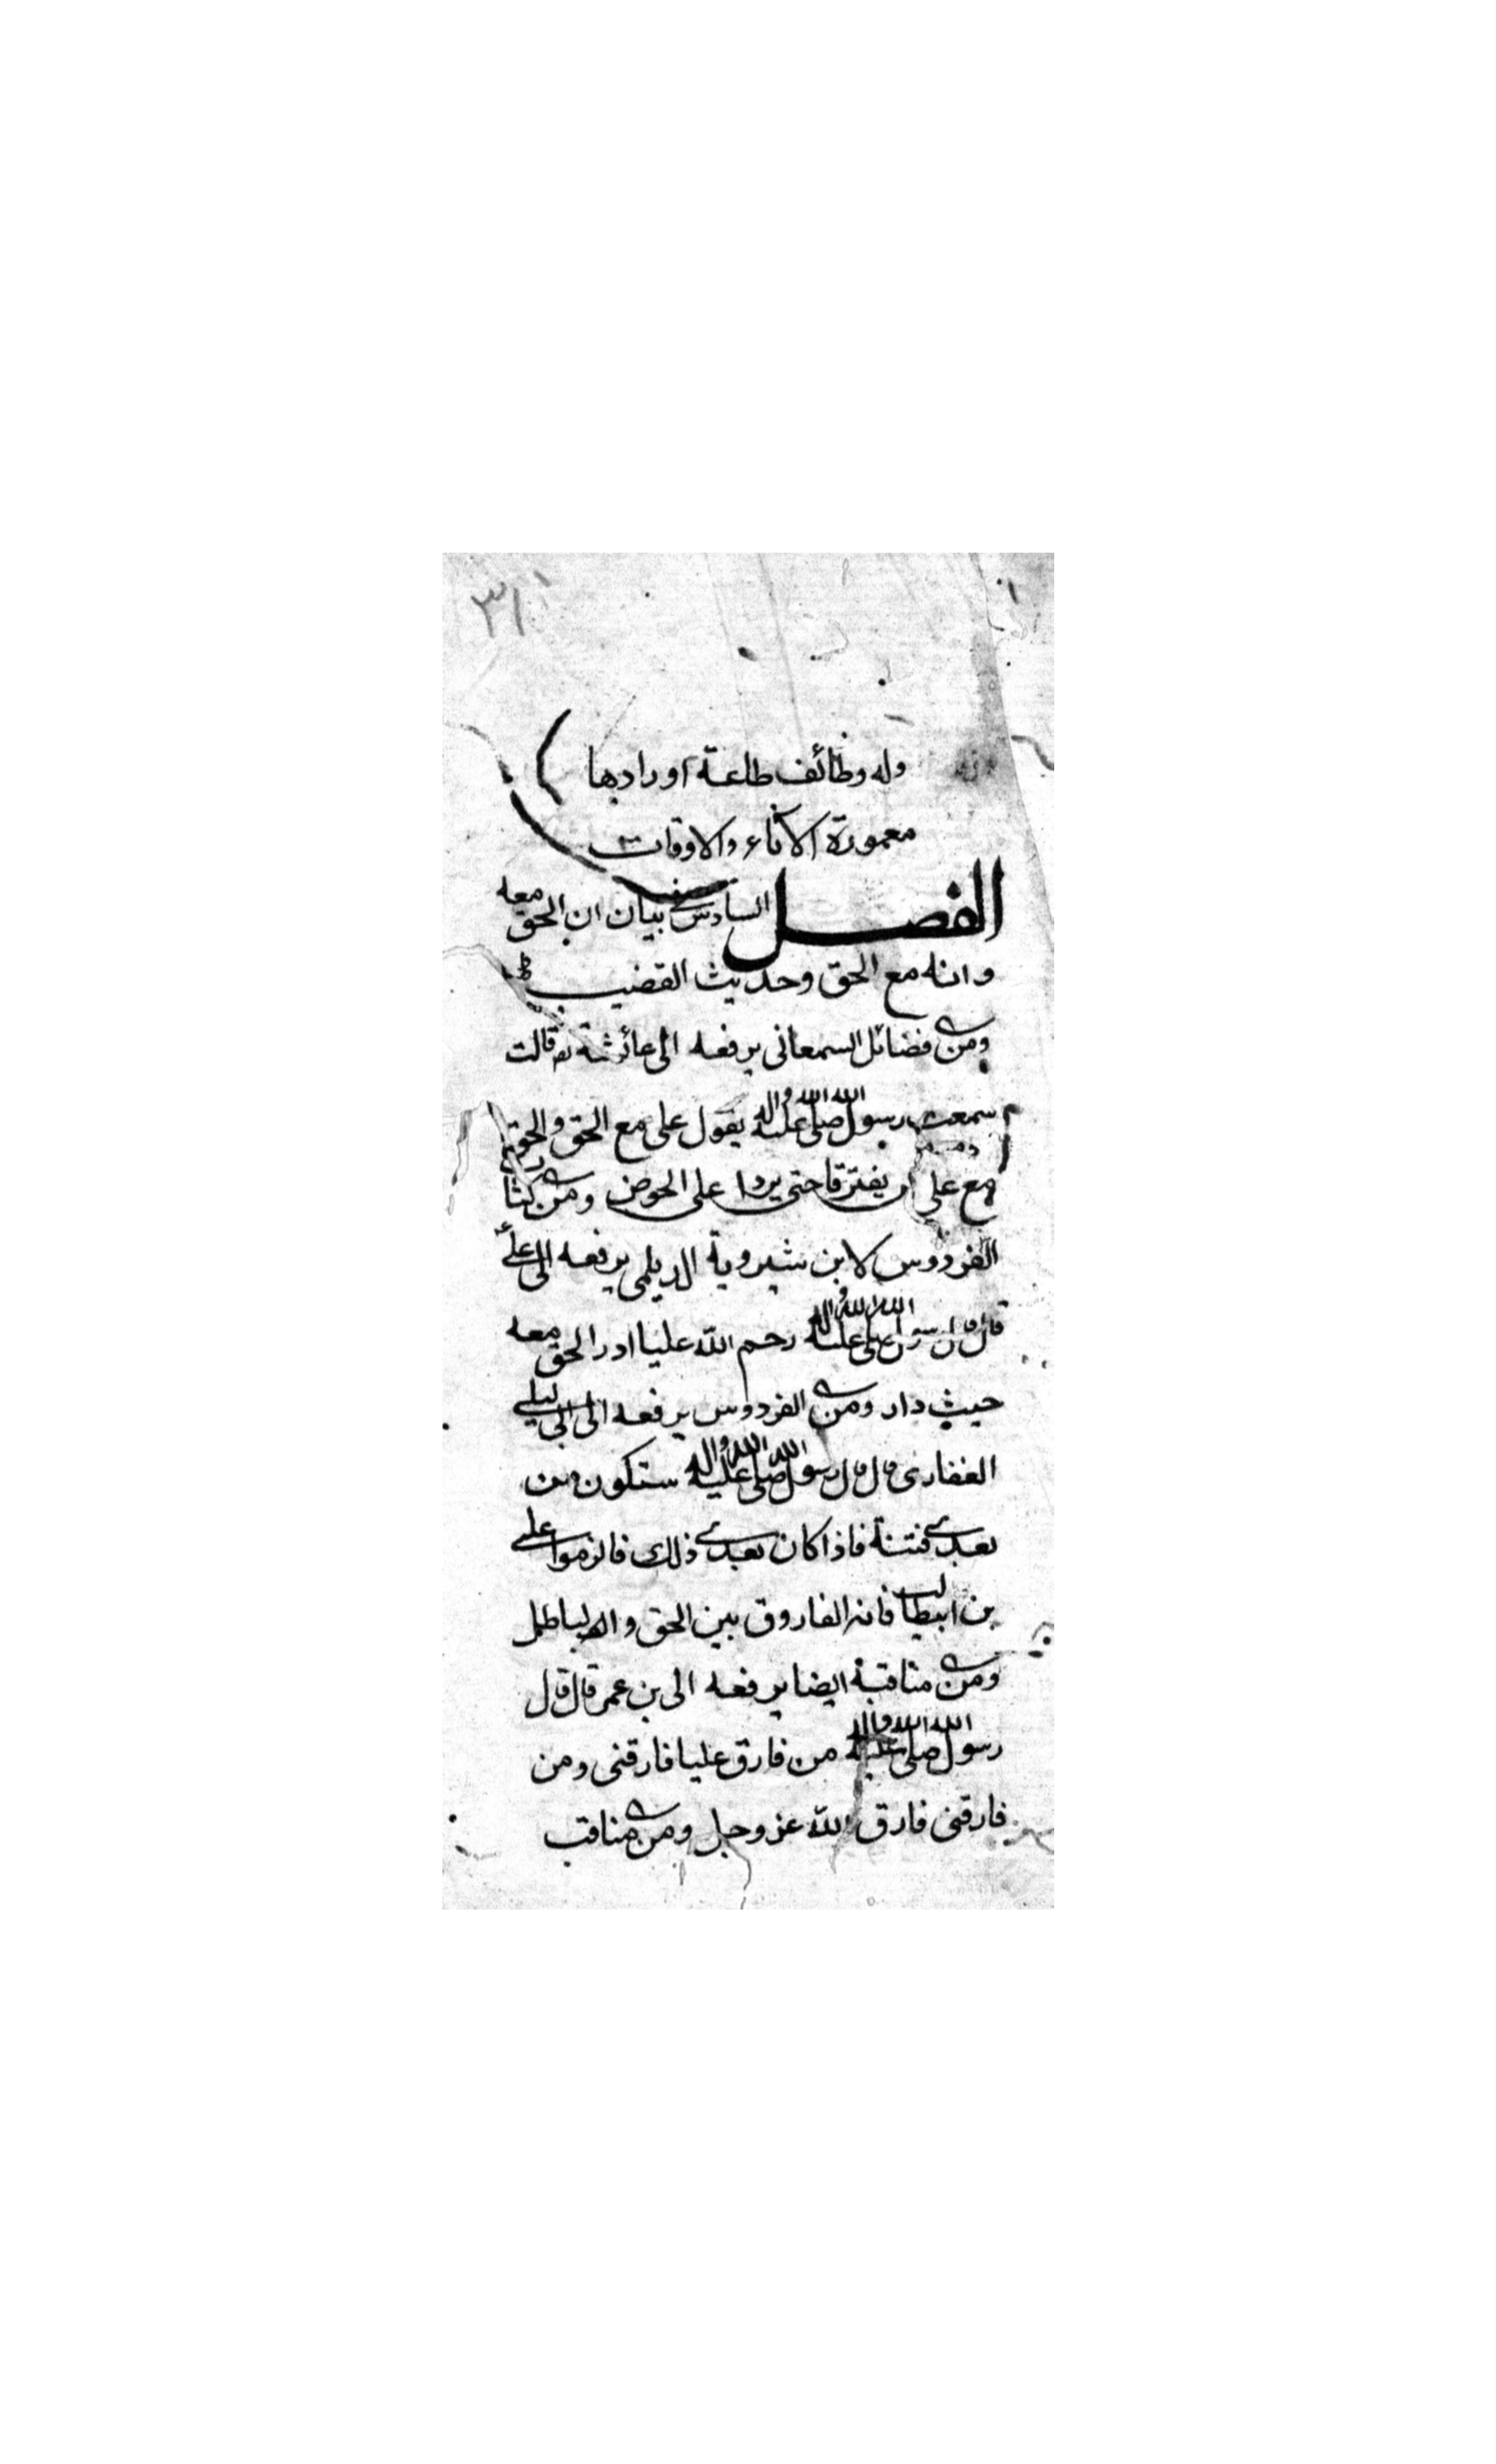 ٣١
وله وظائف طاعة اورادها
معمورة الآناء والاوقات
الفصل السادس في بيان ان الحق معه
وانه مع الحق وحديث القضيب
ومن فضائل السمعاني يرفعه الى عائشة قالت
سمعت رسول الله صلى الله عليه واله يقول علي مع الحق والحق
مع علي لن يفترقا حتى يردا على الحوض ومن كتاب
الفردوس لابن شيروية الديلمي يرفعه الى علي
قال قال رسول الله صلى الله عليه واله رحم الله عليا ادر الحق معه
حيث دار ومن الفردوس يرفعه الى ابي ليلى
الغفاري قال قال رسول الله صلى الله عليه واله ستكون من
بعدي فتنة فاذا كان بعدي ذلك فالزموا علي
بن ابيطالب فانه الفاروق بين الحق والباطل
ومن مناقبه ايضا يرفعه الى بن عمر قال قال
رسول الله صلى الله عليه واله من فارق عليا فارقني ومن
فارقني فارق الله عز وجل ومن مناقب